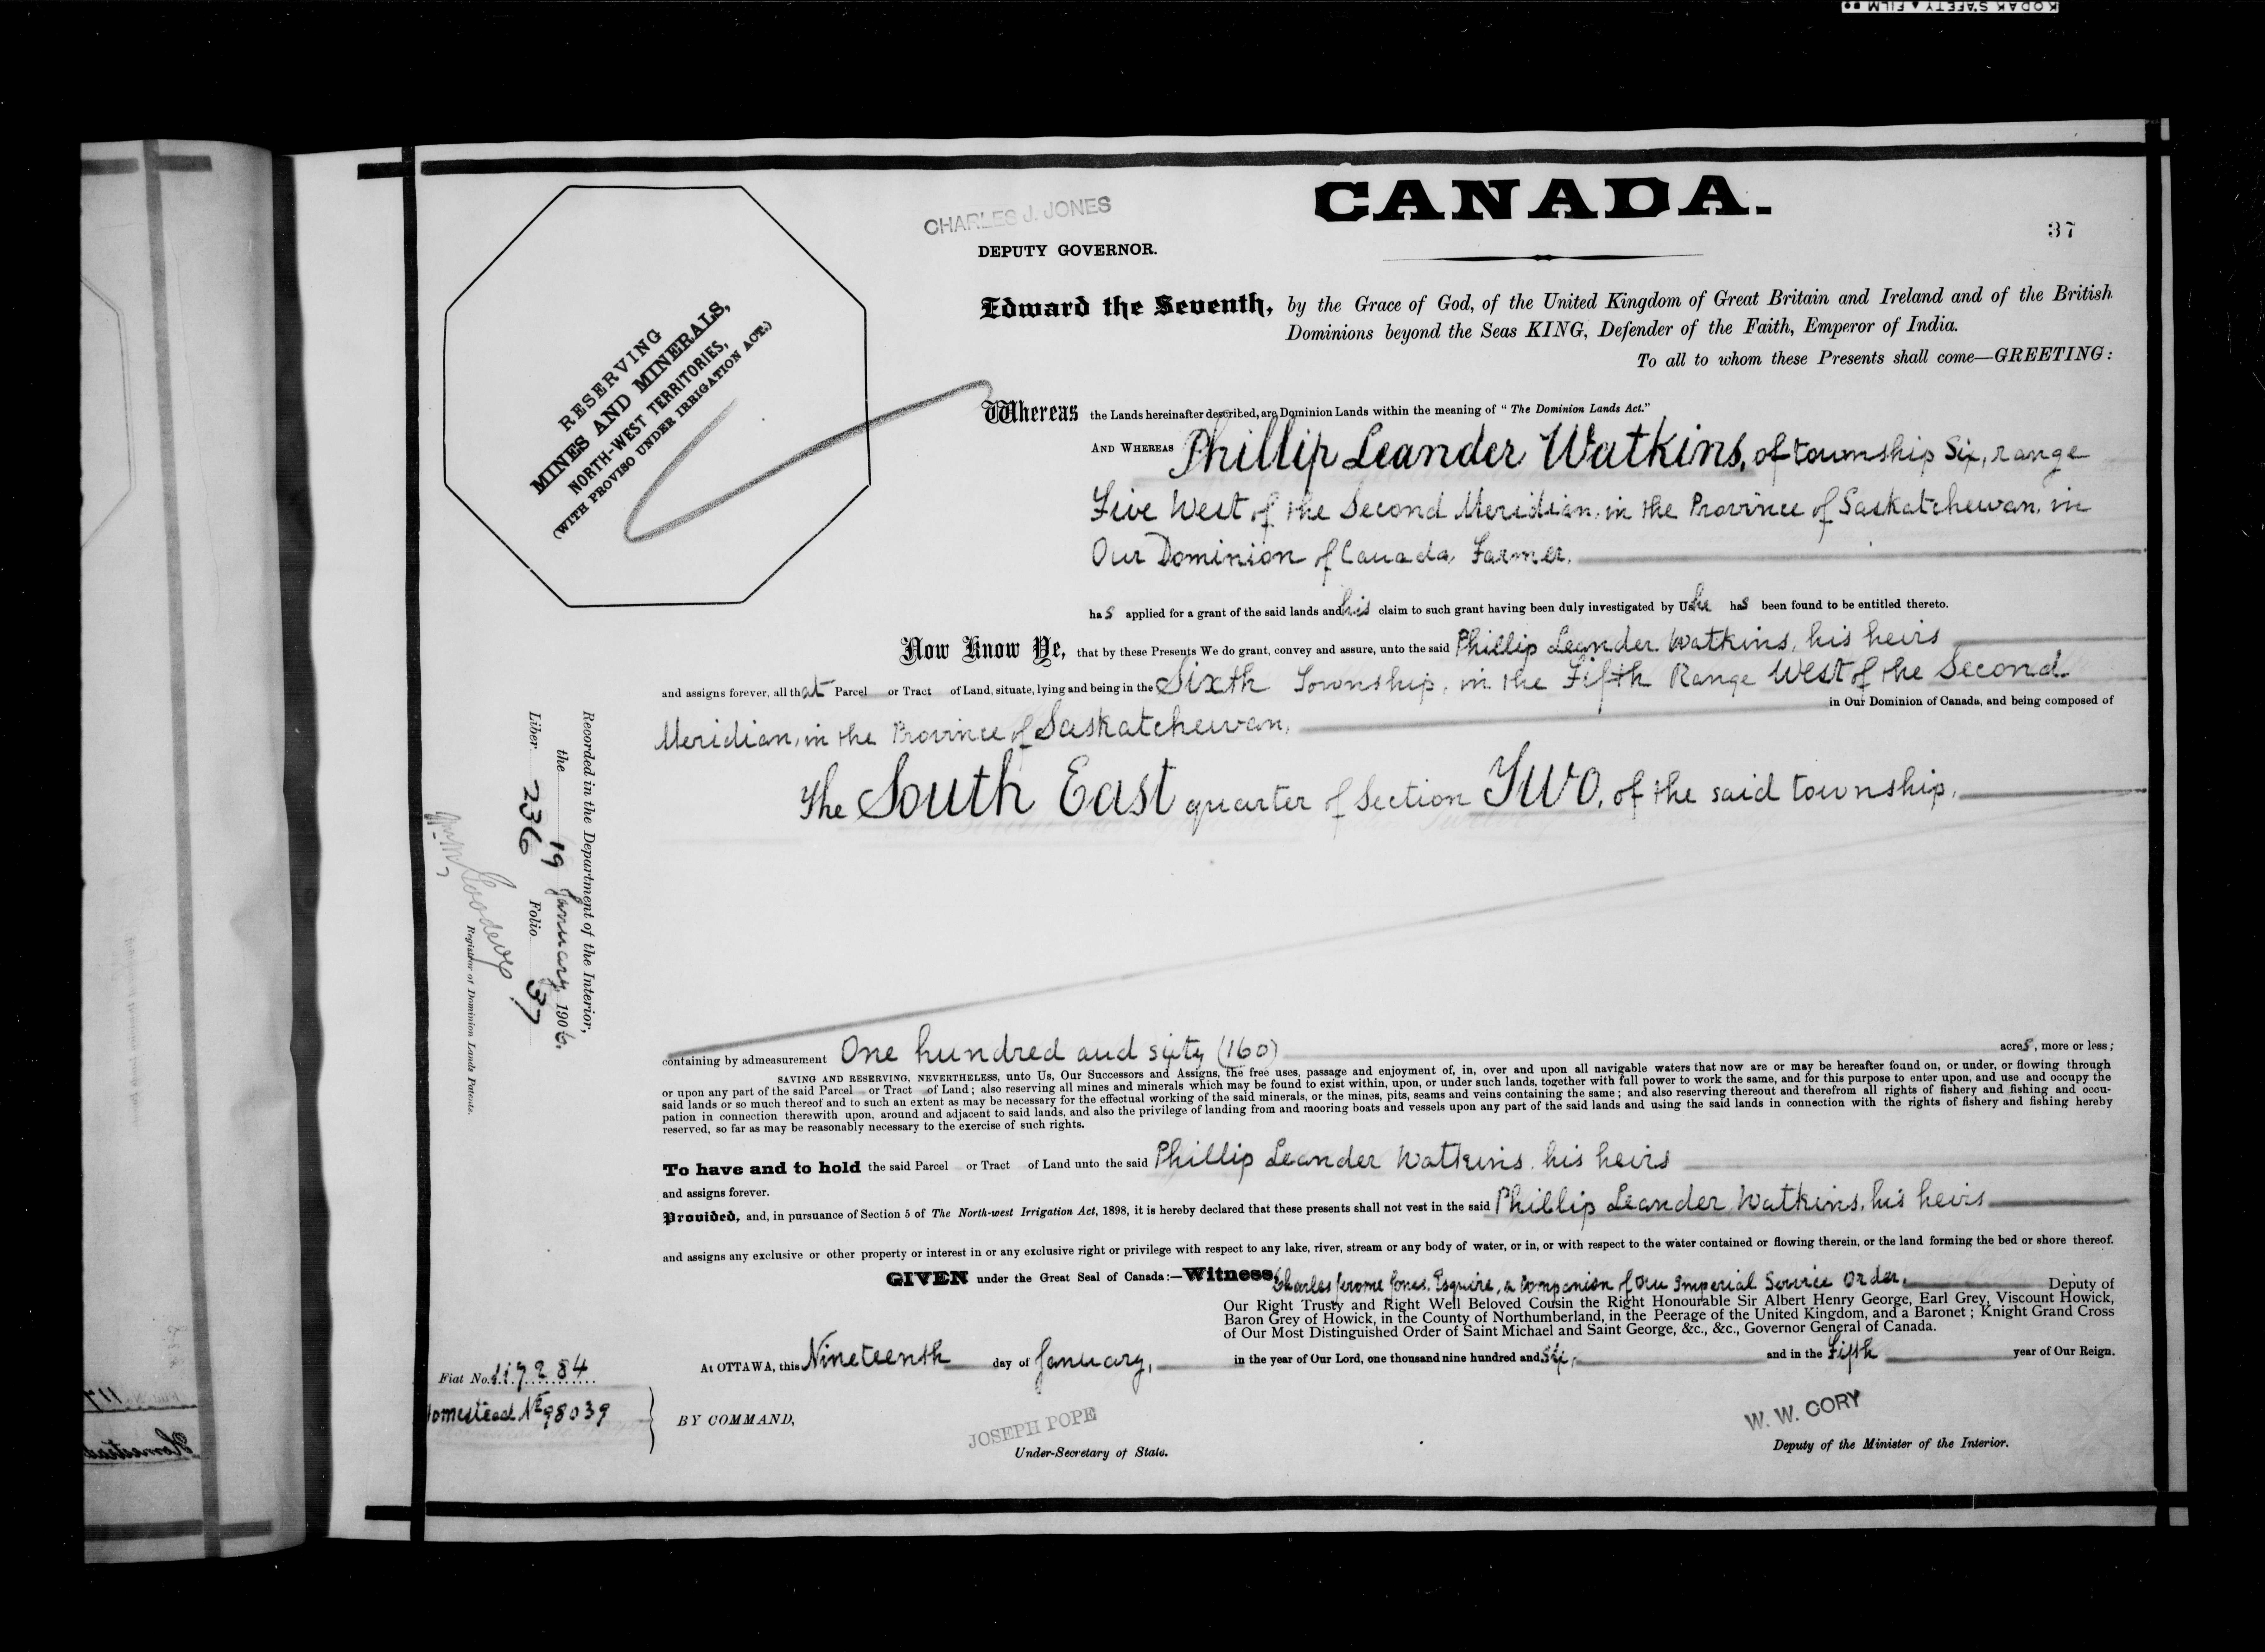 KODAK SAFETY FILM
CANADA.
37
CHARLES J. JONES
DEPUTY GOVERNOR.
RESERVING
MINES AND MINERALS,
NORTH-WEST TERRITORIES,
(WITH PROVISO UNDER IRRIGATION ACT.)
Edward the Seventh, by the Grace of God, of the United Kingdom of Great Britain and Ireland and of the British
Dominions beyond the Seas KING, Defender of the Faith, Emperor of India.
To all to whom these Presents shall come—GREETING:
Whereas the Lands hereinafter described, are Dominion Lands within the meaning of "The Dominion Lands Act."
AND WHEREAS Phillip Leander Watkins, of township Six, range
Five West of the Second Meridian, in the Province of Saskatchewan, in
Our Dominion of Canada, Farmer,
has applied for a grant of the said lands and his claim to such grant having been duly investigated by Us he has been found to be entitled thereto.
Now Know Ye, that by these Presents We do grant, convey and assure, unto the said Phillip Leander Watkins, his heirs
and assigns forever, all that Parcel or Tract of Land, situate, lying and being in the Sixth Township, in the Fifth Range West of the Second
in Our Dominion of Canada, and being composed of
Meridian, in the Province of Saskatchewan,
The South East quarter of Section Two, of the said township,
containing by admeasurement One hundred and sixty (160) acres, more or less;
SAVING AND RESERVING, NEVERTHELESS, unto Us, Our Successors and Assigns, the free uses, passage and enjoyment of, in, over and upon all navigable waters that now are or may be hereafter found on, or under, or flowing through
or upon any part of the said Parcel or Tract of Land; also reserving all mines and minerals which may be found to exist within, upon, or under such lands, together with full power to work the same, and for this purpose to enter upon, and use and occupy the
said lands or so much thereof and to such an extent as may be necessary for the effectual working of the said minerals, or the mines, pits, seams and veins containing the same; and also reserving thereout and therefrom all rights of fishery and fishing and occu-
pation in connection therewith upon, around and adjacent to said lands, and also the privilege of landing from and mooring boats and vessels upon any part of the said lands and using the said lands in connection with the rights of fishery and fishing hereby
reserved, so far as may be reasonably necessary to the exercise of such rights.
To have and to hold the said Parcel or Tract of Land unto the said Phillip Leander Watkins, his heirs
and assigns forever.
Provided, and, in pursuance of Section 5 of The North-west Irrigation Act, 1898, it is hereby declared that these presents shall not vest in the said Phillip Leander Watkins, his heirs
and assigns any exclusive or other property or interest in or any exclusive right or privilege with respect to any lake, river, stream or any body of water, or in, or with respect to the water contained or flowing therein, or the land forming the bed or shore thereof.
GIVEN under the Great Seal of Canada:—Witness, Charles Jerome Jones, Esquire, a Companion of Our Imperial Service Order, Deputy of
Our Right Trusty and Right Well Beloved Cousin the Right Honourable Sir Albert Henry George, Earl Grey, Viscount Howick,
Baron Grey of Howick, in the County of Northumberland, in the Peerage of the United Kingdom, and a Baronet; Knight Grand Cross
of Our Most Distinguished Order of Saint Michael and Saint George, &c., &c., Governor General of Canada.
At OTTAWA, this Nineteenth day of January, in the year of Our Lord, one thousand nine hundred and six, and in the Fifth year of Our Reign.
BY COMMAND,
JOSEPH POPE
Under-Secretary of State.
W. W. CORY
Deputy of the Minister of the Interior.
Fiat No. 117284
Homestead No 98039
Recorded in the Department of the Interior,
the 19 January 1906.
Liber 236 Folio 37
Registrar of Dominion Lands Patents.